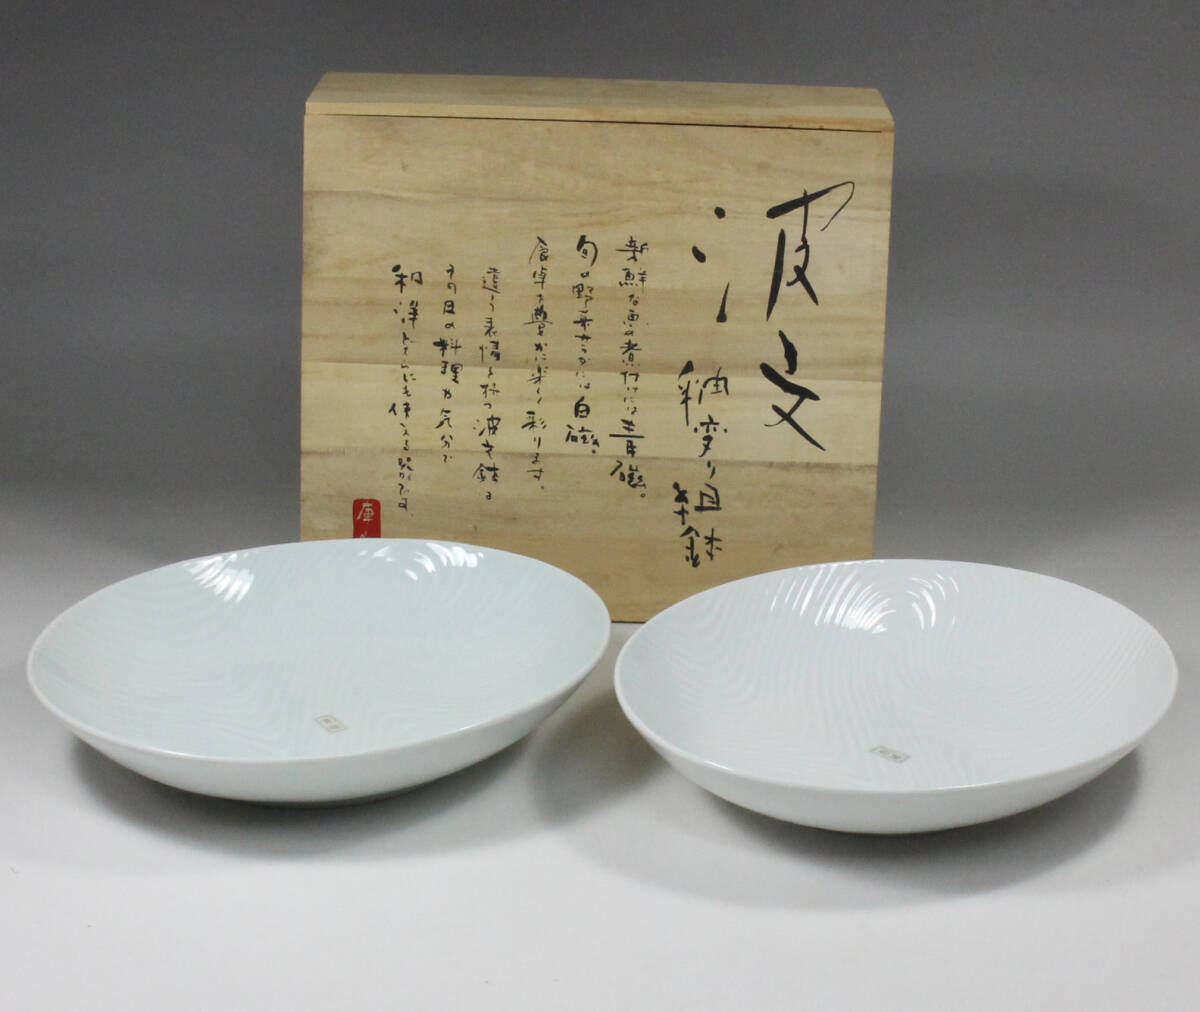 波文
釉変り組鉢
新鮮な魚の煮付けには青磁。
旬の野菜サラダには白磁。
食卓を豊かに楽しく彩ります。
違う表情を持つ波文鉢は
その日の料理や気分で
和洋どちらにも使える器です。